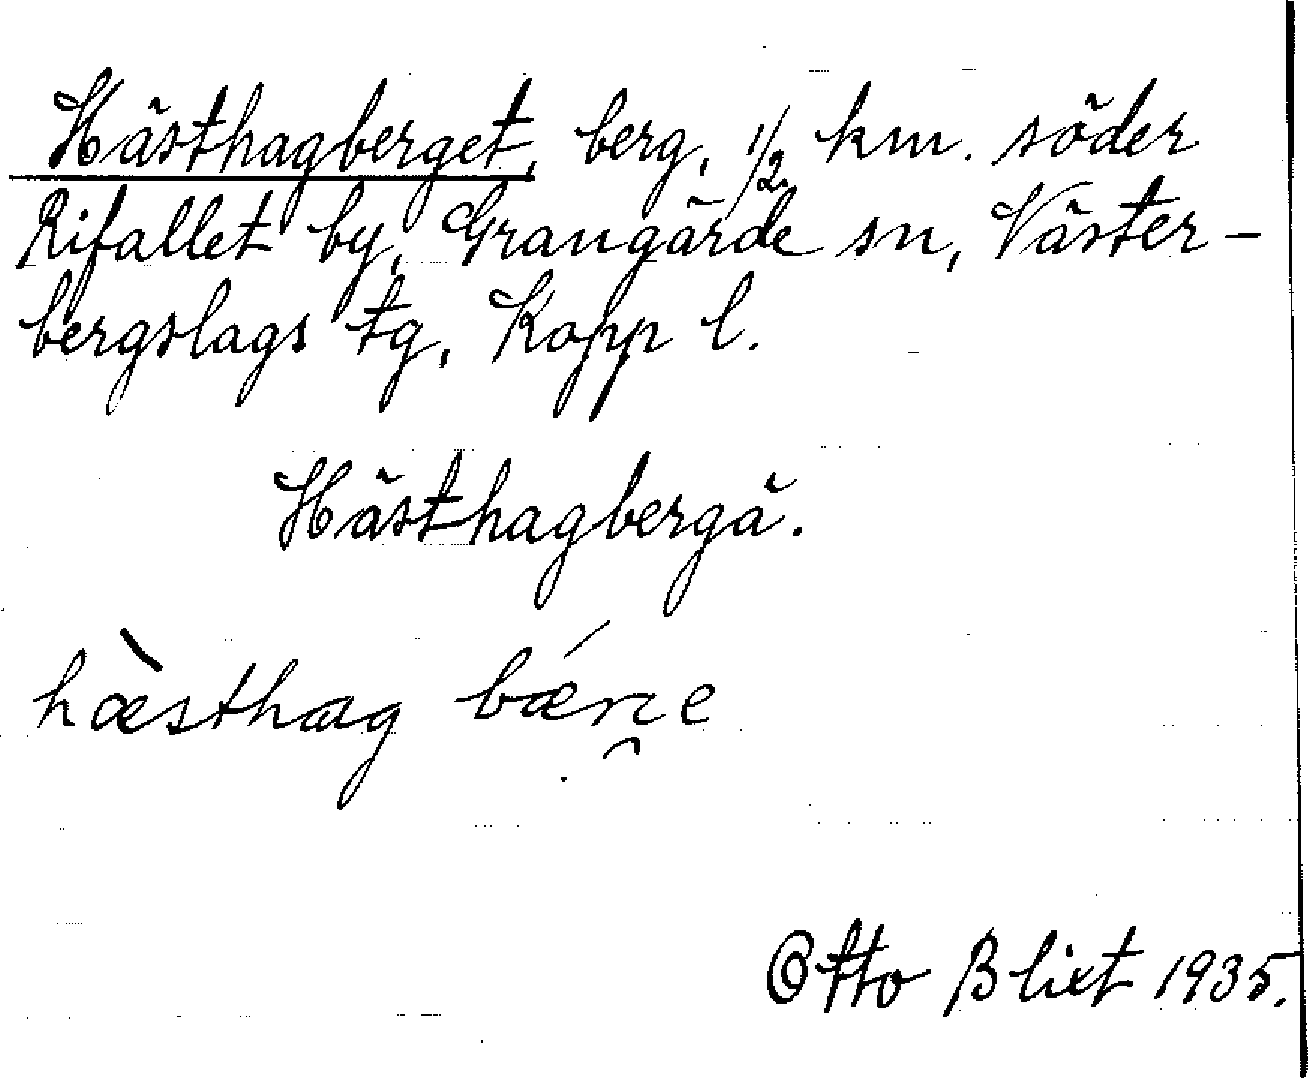 Hästhagberget, berg, 1/2 km. söder
Rifallet by, Grangärde sn, Väster-
bergslags tg, Kopp l.
Hästhagbergä.
hæ̀sthag
Otto Blixt 1935.